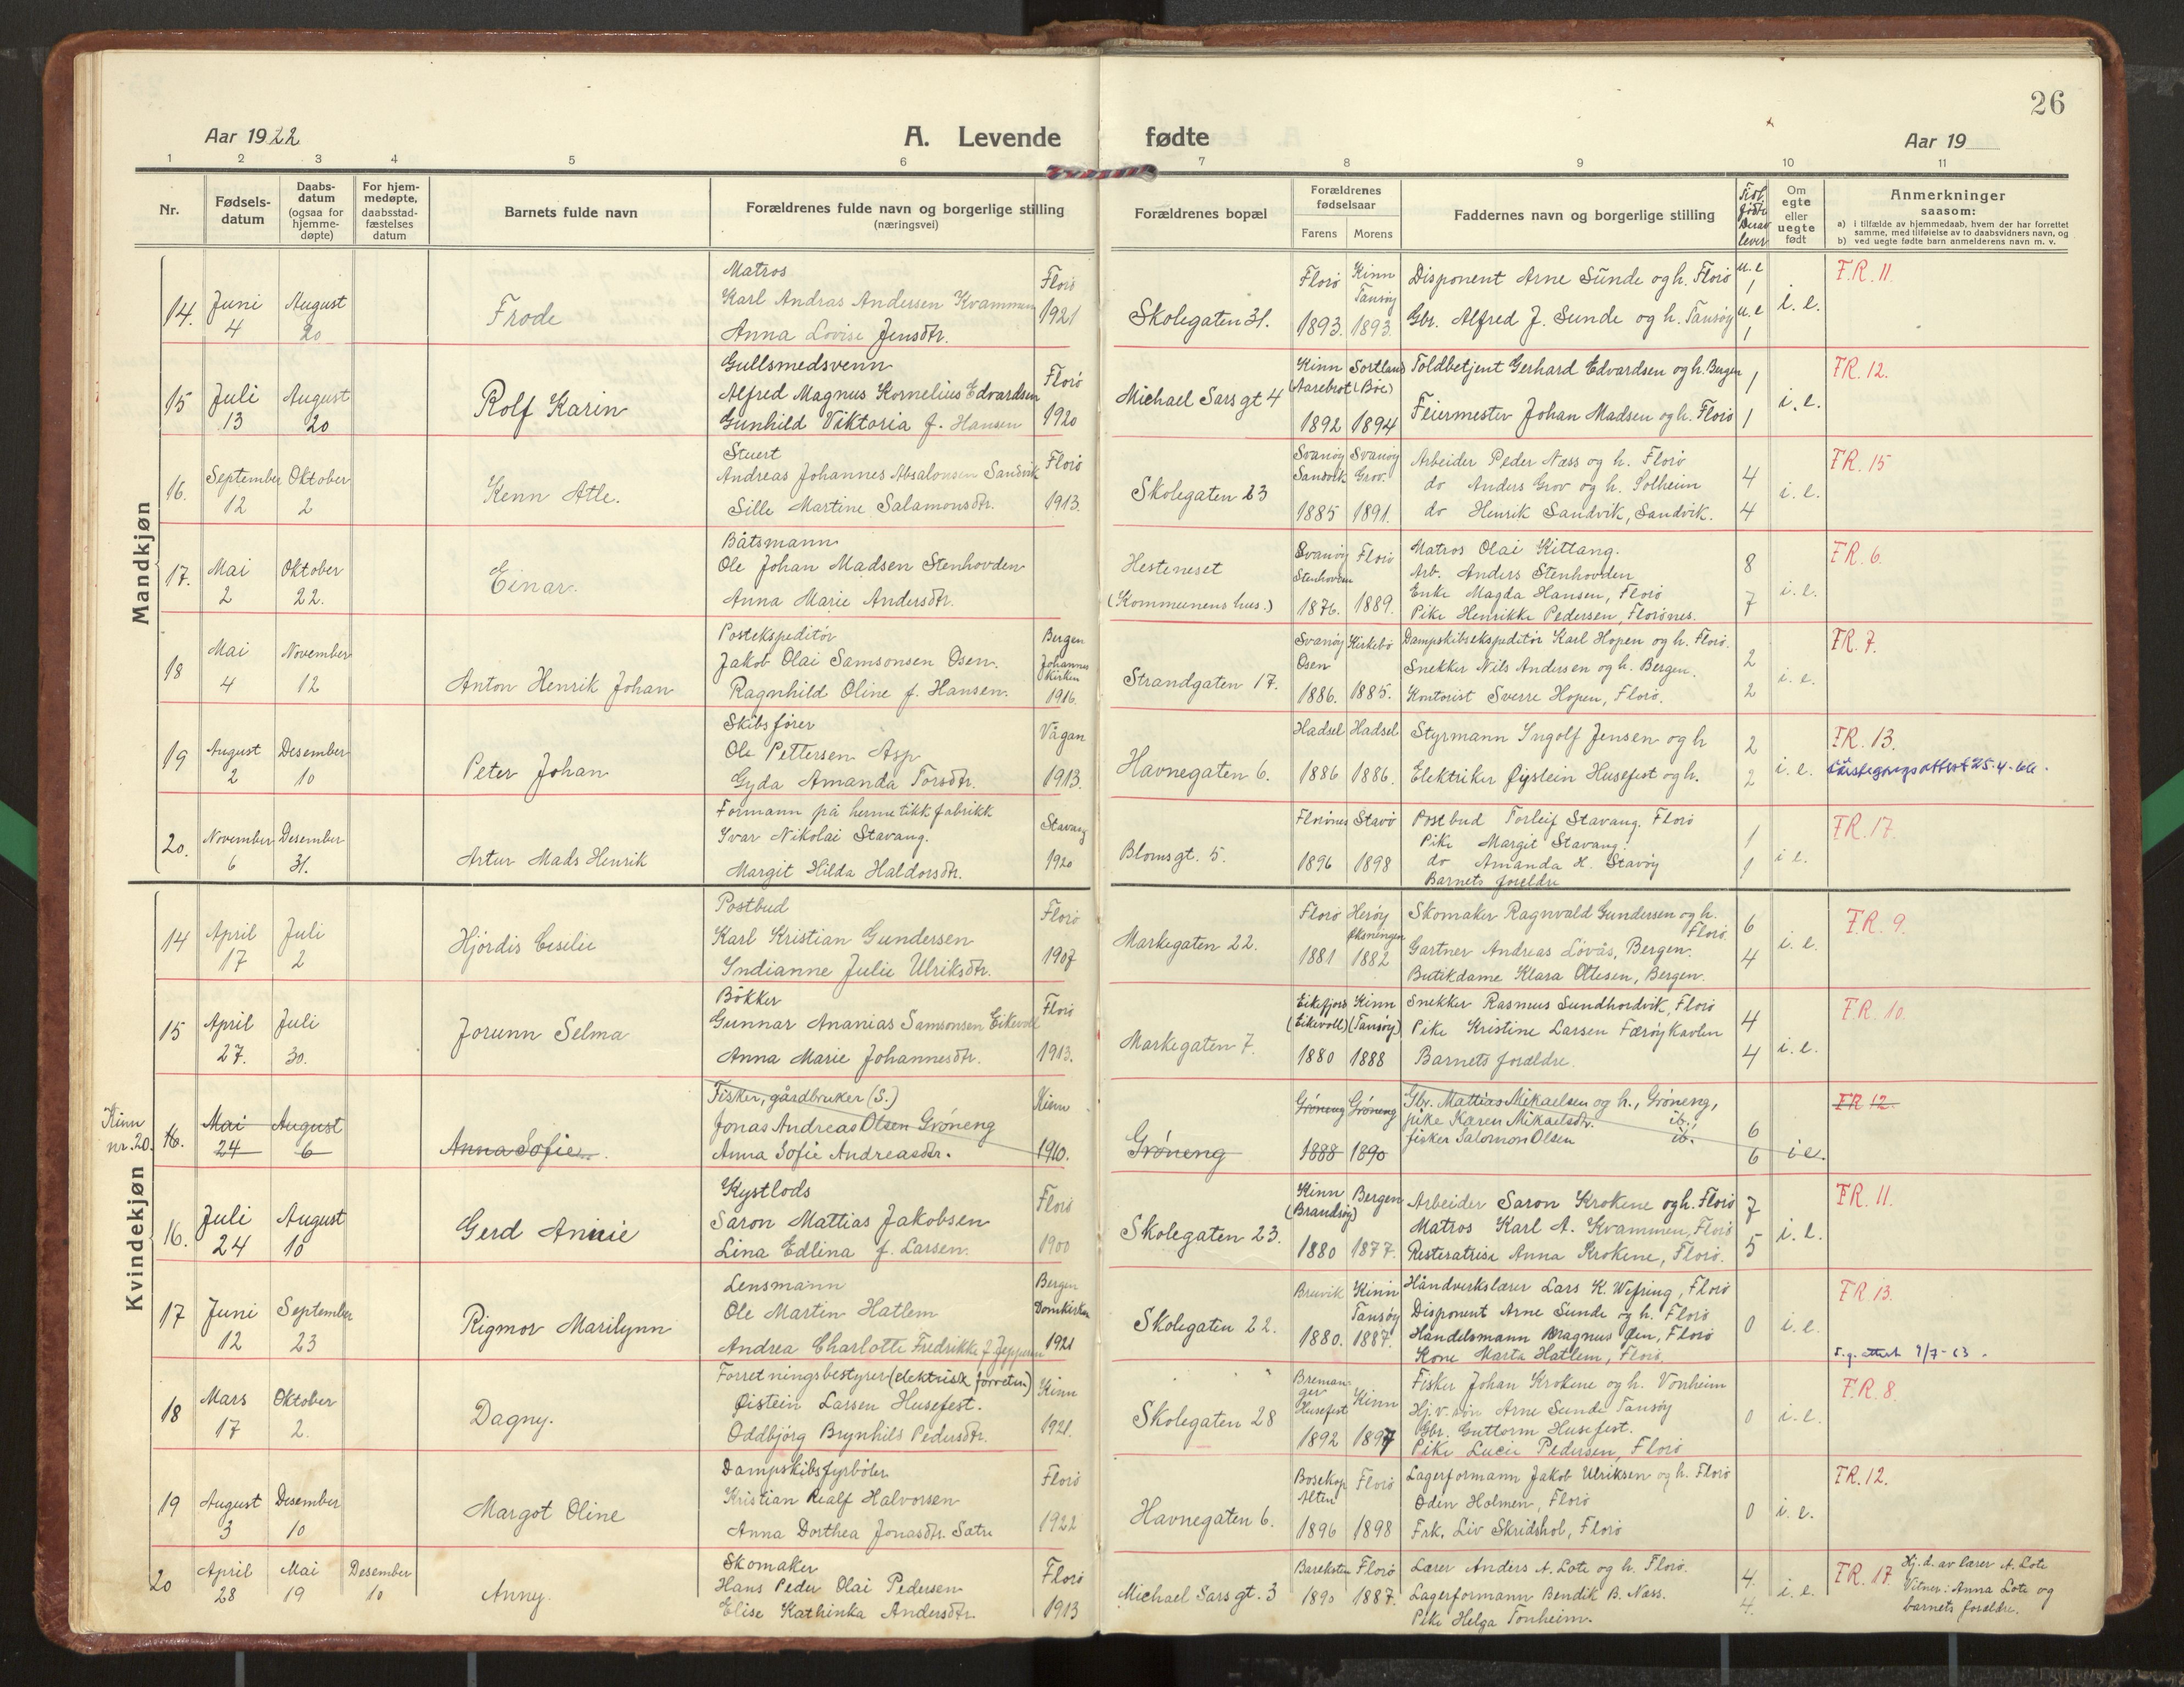 26
Aar 1922
A. Levende fødte
Aar 19
1 2 3 4 5 6 7 8 9 10 11
Nr.
Fødsels-datum
Daabs-datum (ogsaa for hjemme-døpte)
For hjem-medøpte, daabsstad-fæstelses datum
Barnets fulde navn
Forældrenes fulde navn og borgerlige stilling
(næringsvei)
Forældrenes bopæl
Forældrenes fødselsaar
Farens Morens
Faddernes navn og borgerlige stilling
Om egte eller uegte født
Anmerkninger
saasom:
a) i tilfælde av hjemmedaab, hvem der har forrettet
samme, med tilføielse av to daabsvidners navn, og
b) ved uegte fødte barn anmelderens navn m. v.
Mandkjøn
14. Juni 4 August 20
Frode
Matros
Karl Andras Andersen Kvammen
Anna Lovise Jensdtr.
Florö 1921
Skolegaten 31.
Florö 1893. Kinn Tansöy 1893.
Disponent Arne Sunde og h. Florö u.e 1
Gbr. Alfred J. Sunde og h. Tansöy u.e 1
i. e.
F.R. 11.
15 Juli 13 August 20
Rolf Karin
Gullsmedsvenn
Alfred Magnus Kornelius Edvardsen
Gunhild Viktoria f. Hansen
Florö 1920
Michael Sars gt 4
Kinn (Aarebrot 1892 Sortland (Böe) 1894
Toldbetjent Gerhard Edvardsen og h. Bergen 1
Feiermester Johan Madsen og h. Florö 1
i. e.
FR. 12.
16. September 12 Oktober 2
Kenn Atle.
Stuert
Andreas Johannes Absalonsen Sandvik
Sille Martine Salamonsdtr.
Florö 1913.
Skolegaten 23
Svanöy Sandvik 1885 Svanöy Grov. 1891.
Arbeider Peder Næss og h. Florö
do Anders Grov og h. Solheim 4
do Henrik Sandvik, Sandvik. 4
i. e.
FR. 15
17. Mai 2 Oktober 22.
Einar.
Båtsmann
Ole Johan Madsen Stenhovden
Anna Marie Andersdtr.
Hesteneset
(Kommunens hus.)
Svanöy Stenhovden 1876. Florö 1889.
Matros Olai Kittang.
Arb. Anders Stenhovden 8
Enke Magda Hansen, Florö
Pike Henrikke Pedersen, Florönes. 7
i. e.
FR. 6.
18 Mai 4 November 12
Anton Henrik Johan
Postekspeditör
Jakob Olai Samsonsen Osen.
Ragnhild Oline f. Hansen.
Bergen Johannes Kirken 1916.
Strandgaten 17.
Svanöy Osen 1886. Kirkebö 1885.
Dampskibsekspeditör Karl Hopen og h. Florö.
Snekker Nils Andersen og h. Bergen. 2
Kontorist Sverre Hopen, Florö. 2
i. e.
FR. 7.
19 August 2 Desember 10
Peter Johan
Skibsförer
Ole Pettersen Asp
Gyda Amanda Torsdtr.
Vågan 1913.
Havnegaten 6.
Hadsel 1886 Hadsel 1886.
Styrmann Ingolf Jensen og h 2
Elektriker Öystein Husefest og h. 2
i. e.
FR. 13.
25-4-66.
20. November 6 Desember 31.
Artur Mads Henrik
Formann på hermetikkfabrikk
Ivar Nikolai Stavang.
Margit Hilda Haldorsdtr.
Stavang 1920
Blomsgt. 5.
Florönes 1896 Stavö 1898
Postbud Torleif Stavang. Florö
Pike Margit Stavang. 1
do Amanda H. Stavöy 1
Barnets foreldre
i e.
FR. 17.
Kvindekjøn
14 April 17 Juli 2
Hjördis Cesilie
Postbud
Karl Kristian Gundersen
Indianne Julie Ulriksdtr.
Florö 1907
Markegaten 22.
Florö 1881 Heröy 1882
Skomaker Ragnvald Gundersen og h. Florö 6
Gartner Andreas Lövås, Bergen. 4
Butikdame Klara Ottesen, Bergen.
i. e.
F.R. 9.
15 April 27. Juli 30.
Jorunn Selma
Bökker
Gunnar Ananias Samsonsen Eikevoll
Anna Marie Johannesdtr.
Florö 1913.
Markegaten 7.
Eikefjord (Eikevoll) 1880 Kinn (Tansöy) 1888
Snekker Rasmus Sundhordvik, Florö
Pike Kristine Larsen Færöy Kavlen 4
Barnets foreldre. 4
i. e.
F.R. 10.
Kinn nr. 20. 16. Mai 24 August 6
Anna Sofie
Fisker, gårdbruker (S.)
Jonas Andreas Olsen Gröneng
Anna Sofie Andreasdtr.
Kinn 1910.
Gröneng
Gröneng 1888 Gröneng 1890
Gbr. Mattias Mikaelsen og h., Gröneng,
pike Karen Mikaelsdtr. ib.; 6
fisker Salomon Olsen ib. 6
i e.
FR 12.
16. Juli 24 August 10
Gerd Annie
Kystlods
Saron Mattias Jakobsen
Lina Edlina f. Larsen.
Florö 1900
Skolegaten 23.
Kinn (Brandsöy) 1880 Bergen 1877.
Arbeider Saron Krokene og h. Florö 7
Matros Karl A. Kvammen, Florö
Anna Krokene, Florö. 5
i. e.
FR. 11.
17 Juni 12 September 23
Rigmor Marilynn
Lensmann
Ole Martin Hatlem
Andrea Charlotte Fredrikke f. Jeppesen
Bergen Domkirken 1921
Skolegaten 22.
Breivik 1880. Kinn Tansöy 1887.
Håndverkslærer Lars K. Wefring, Florö
Disponent Arne Sunde og h. Florö
Handelsmann Magnus Öen, Florö 0
Kone Marta Hatlem, Florö.
i. e.
FR 13.
F.g. attest 9/7-63.
18 Mars 17 Oktober 2.
Dagny.
Forretningsbestyrer (elektrisk forretn.)
Øistein Larsen Husefest.
Oddbjörg Brynhils Pedersdtr.
Kinn 1921.
Skolegaten 28
Bremanger Husefest 1892 Kinn 1897
Fisker Johan Krokene og h. Vonheim
Hj.v. sön Arne Sunde Tansöy
Gbr. Guttorm Husefest. 0
Pike Lucie Pedersen, Florö
i. e.
F.R. 8.
19 August 3 Desember 10
Margot Oline
Dampskibsfyrböter
Kristian Rialf Halvorsen
Anna Dorthea Jonasdtr. Sætre
Florö 1922
Havnegaten 6.
Bosekop Alten 1896 Florö 1898
Lagerformann Jakob Ulriksen og h. Florö
Oden Holmen, Florö
Frk. Liv Skridshol, Florö 0
i. e.
FR. 12.
20 April 28 Mai 19 Desember 10
Anny.
Skomaker
Hans Peder Olai Pedersen
Elise Kathinka Andersdtr.
Florö 1913
Michael Sars gt. 3
Bareksten 1890 Florö 1887.
Lærer Anders A. Lote og h. Florö. 4.
Lagerformann Bendik B. Næss. 4.
Pike Helga Tonheim.
i. e.
FR. 17.
Hj. d. av lærer A. Lote
Vitner: Anna Lote og
barnets foreldre.